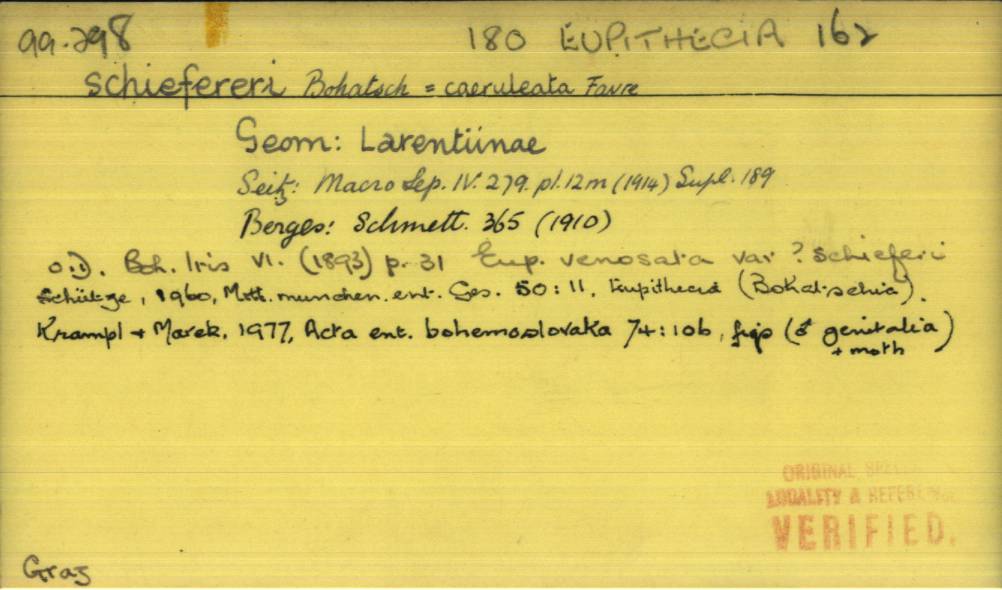 99.298 180 EUPITHECIA 162
schiefereri Bohatsch = caeruleata Favre
Geom: Larentiinae
Seitz: Macro Lep. IV. 279. pl. 12m (1914) Supl. 189
Berges: Schmett. 365 (1910)
o.d. Boh. Iris VI. (1893) p. 31 Eup. venosata var ? schieferi
Schütze, 1960, Mitt. munchen. ent. Ges. 50: 11, Eupithecia (Bohatschia).
Krampl + Marek, 1977, Acta ent. bohemoslovaka 74: 106, figs (♂ genitalia)
+ moth
ORIGINAL
LOCALITY & REFERENCE
VERIFIED.
Graz